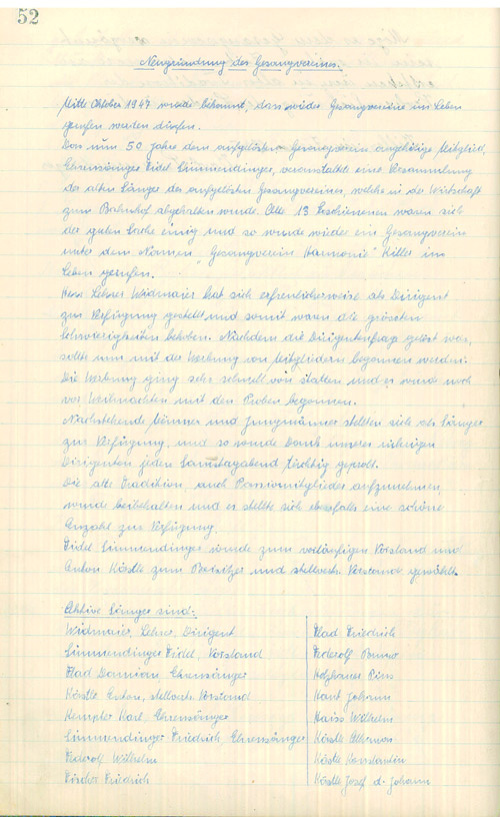 52
Neugründung des Gesangvereines.
Mitte Oktober 1947 wurde bekannt, dass wieder Gesangvereine ins Leben
gerufen werden dürfen.
Das nun 50 Jahre dem aufgelösten Gesangverein angehörige Mitglied,
Ehrensänger Fidel Simmendinger, veranstaltete eine Versammlung
der alten Sänger des aufgelösten Gesangvereines, welche in der Wirtschaft
zum Bahnhof abgehalten wurde. Alle 13 Erschienenen waren sich
der guten Sache einig und so wurde wieder ein Gesangverein
unter dem Namen „Gesangverein Harmonie" Killer ins
Leben gerufen.
Herr Lehrer Widmaier hat sich erfreulicherweise als Dirigent
zur Verfügung gestellt und somit waren die grössten
Schwierigkeiten behoben. Nachdem die Dirigentenfrage gelöst war,
sollte nun mit der Werbung von Mitgliedern begonnen werden.
Die Werbung ging sehr schnell von statten und es wurde noch
vor Weihnachten mit den Proben begonnen.
Nachstehende Männer und Jungmänner stellten sich als Sänger
zur Verfügung, und so wurde Dank unseres rührigen
Dirigenten jeden Samstagabend tüchtig geprobt.
Die alte Tradition, auch Passivmitglieder aufzunehmen,
wurde beibehalten und es stellte sich ebenfalls eine schöne
Anzahl zur Verfügung.
Fidel Simmendinger wurde zum vorläufigen Vorstand und
Anton Köstle zum Beisitzer und stellvertr. Vorstand gewählt.
Aktive Sänger sind:
Widmaier, Lehrer, Dirigent
Simmendinger Fidel, Vorstand
Flad Damian, Ehrensänger
Köstle Anton, stellvertr. Vorstand
Kempter Karl, Ehrensänger
Simmendinger Friedrich, Ehrensänger
Federolf Wilhelm
Fischer Friedrich
Flad Friedrich
Federolf Bruno
Holzhauer Pius
Kant Johann
Kaiss Wilhelm
Köstle
Köstle Konstantin
Köstle Josef d. Johann